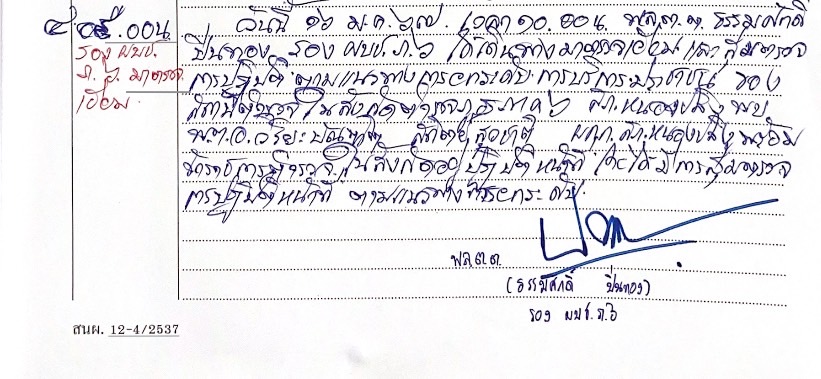 ๔ ๐๙.๐๐น. วันนี้ ๑๖ ม.ค.๖๗. เวลา ๑๐.๐๐น. พล.ต.ต. ธรรมศักดิ์
รอง ผบช. ปิ่นทอง รอง ผบช.ภ.๖ ได้เดินทางมาตรวจเยี่ยม และสุ่มตรวจ
ภ.๖ มาตรวจ การปฏิบัติ ตามแนวทางการยกระดับ การบริการประชาชน ของ
เยี่ยม สถานีตำรวจ ในสังกัดตำรวจภูธรภาค ๖ พบ
พ.ต.อ. ผกก.สภ. พร้อม
ข้าราชการตำรวจ ในสังกัด ปฏิบัติหน้าที่ และได้มีการสุ่มตรวจ
การปฏิบัติหน้าที่ ตามแนวทางการยกระดับ
พล.ต.ต.
(ธรรมศักดิ์ ปิ่นทอง)
รอง ผบช.ภ.๖
สนผ. 12-4/2537